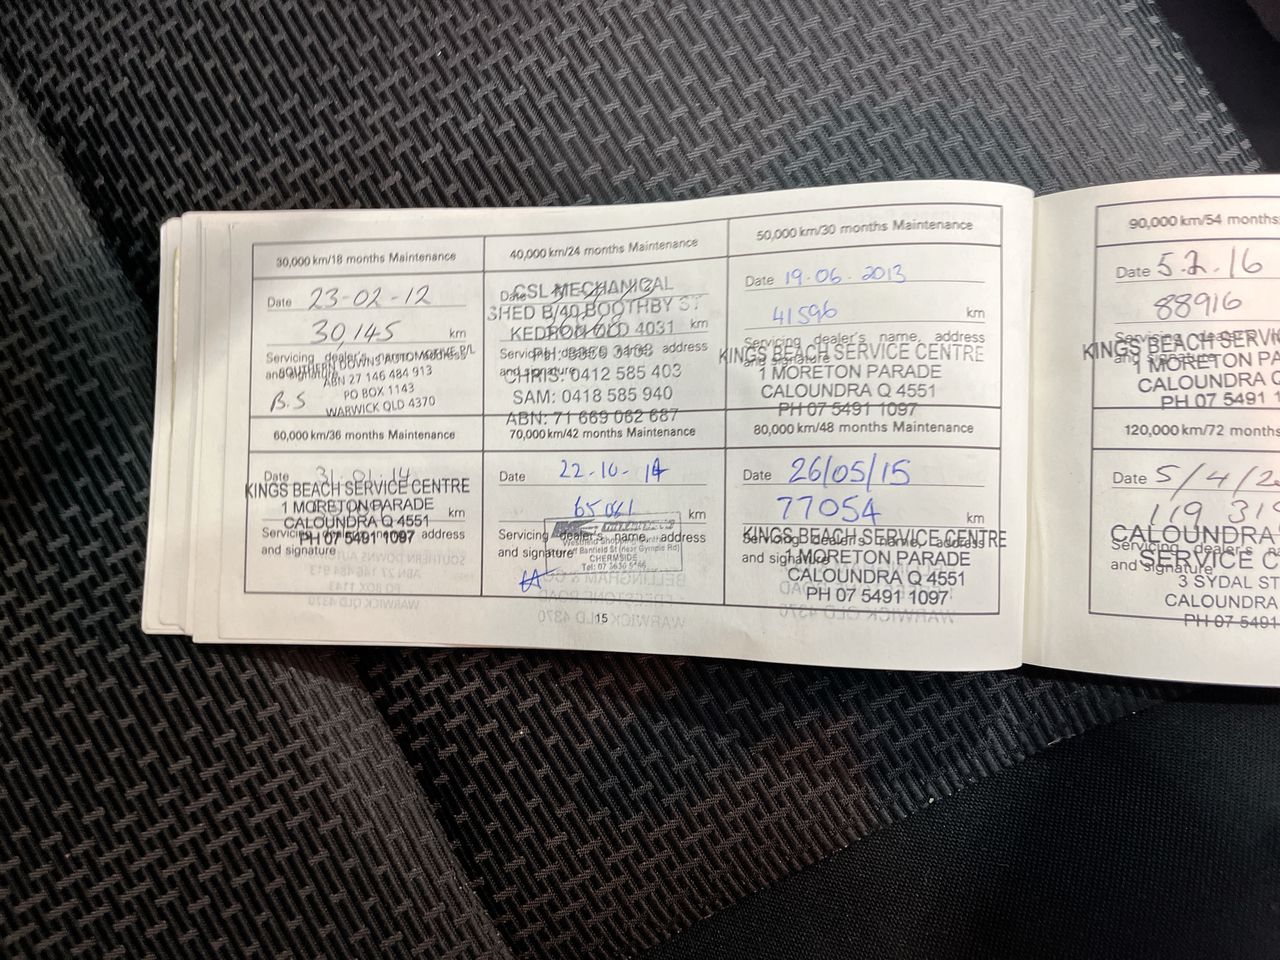 30,000 km/18 months Maintenance
Date 23-02-12
30,145 km
Servicing dealer's name, address
and signature
SOUTHERN DOWNS AUTOMOTIVE P/L
ABN 27 146 484 913
PO BOX 1143
WARWICK QLD 4370
B.S
40,000 km/24 months Maintenance
Date
km
CSL MECHANICAL
SHED B/40 BOOTHBY ST
KEDRON QLD 4031
Servicing dealer's name, address
and signature
CHRIS: 0412 585 403
SAM: 0418 585 940
ABN: 71 669 062 687
50,000 km/30 months Maintenance
Date 19.06.2013
41596 km
Servicing dealer's name, address
and signature
KINGS BEACH SERVICE CENTRE
1 MORETON PARADE
CALOUNDRA Q 4551
PH 07 5491 1097
60,000 km/36 months Maintenance
Date 31.01.14
km
KINGS BEACH SERVICE CENTRE
1 MORETON PARADE
CALOUNDRA Q 4551
PH 07 5491 1097
Servicing dealer's name, address
and signature
70,000 km/42 months Maintenance
Date 22-10-14
65061 km
Servicing dealer's name, address
and signature
CHERMSIDE
80,000 km/48 months Maintenance
Date 26/05/15
77054 km
Servicing dealer's name, address
and signature
KINGS BEACH SERVICE CENTRE
1 MORETON PARADE
CALOUNDRA Q 4551
PH 07 5491 1097
15
90,000 km/54 months
Date 5.2.16
88916
Servicing dealer's
and signature
KINGS BEACH SERVI
1 MORETON PA
CALOUNDRA Q
PH 07 5491 1
120,000 km/72 months
Date 5/4/2
119 31
Servicing dealer's
and signature
CALOUNDRA
SERVICE C
3 SYDAL ST
CALOUNDRA
PH 07 5491